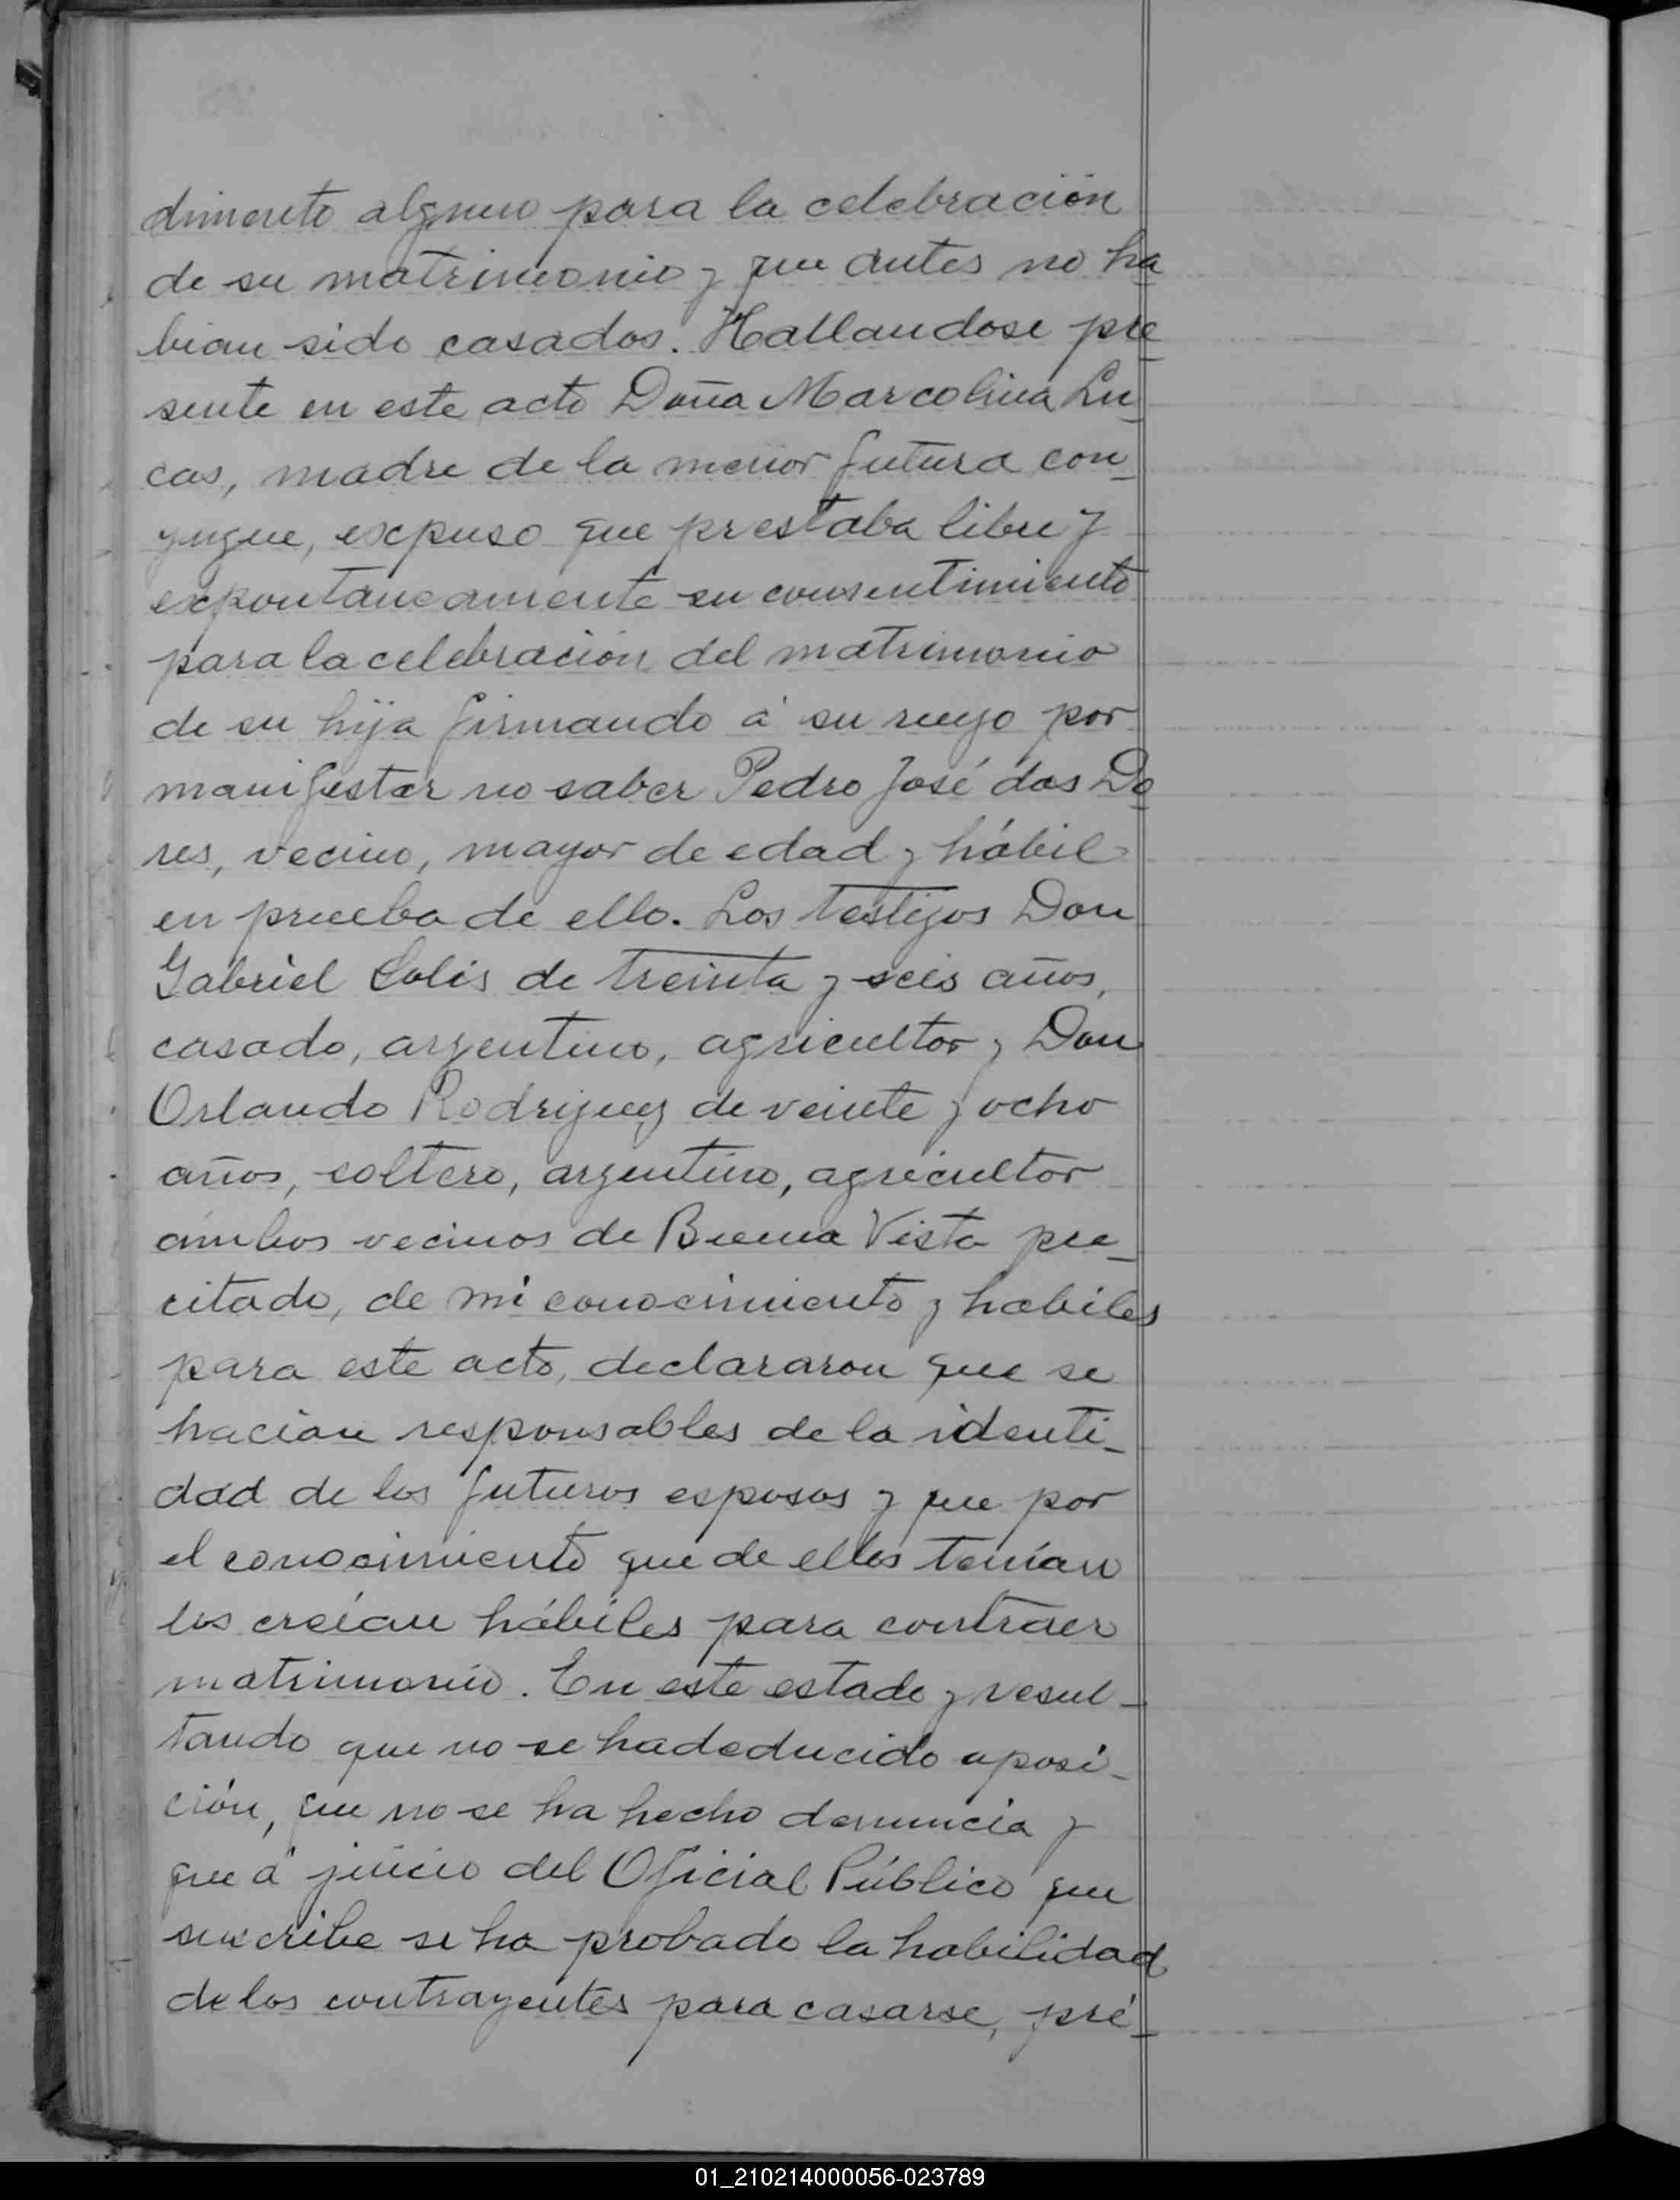 dimento alguno para la celebración
de su matrimonio y que antes no ha
bian sido casados. Hallandose pre
sente en este acto Doña Marcolina Lu
cas, madre de la menor futura con-
yugue, expuso que prestaba libre y
expontaneamente su consentimiento
para la celebración del matrimonio
de su hija firmando á su ruego por
manifestar no saber Pedro José das Do
res, vecino, mayor de edad y hábil
en prueba de ello. Los testigos Don
Gabriel Solis de treinta y seis años,
casado, argentino, agricultor y Don
Orlando Rodriguez de veinte y ocho
años, soltero, argentino, agricultor
ambos vecinos de Buena Vista pre-
citado, de mi conocimiento y habiles
para este acto, declararon que se
hacían responsables de la identi-
dad de los futuros esposos y que por
el conocimiento que de ellos tenían
los creían hábiles para contraer
matrimonio. En este estado y resul-
tando que no se ha deducido oposi-
ción, que no se ha hecho denuncia y
que á juicio del Oficial Público que
suscribe se ha probado la habilidad
de los contrayentes para casarse, pré-
01_210214000056-023789